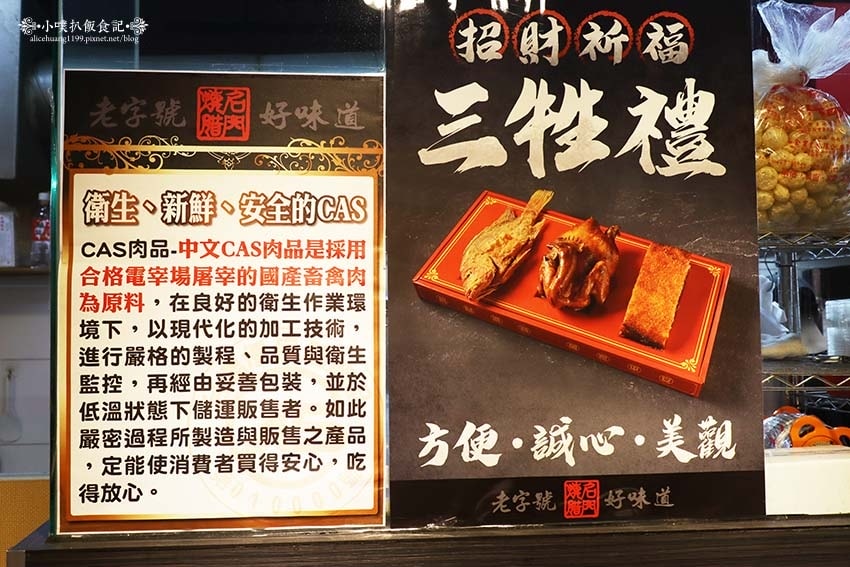 小噗扒飯食記
alicehuang1199.pixnet.net/blog
老字號 名門燒腊 好味道
衛生、新鮮、安全的CAS
CAS肉品-中文CAS肉品是採用
合格電宰場屠宰的國產畜禽肉
為原料，在良好的衛生作業環
境下，以現代化的加工技術，
進行嚴格的製程、品質與衛生
監控，再經由妥善包裝，並於
低溫狀態下儲運販售者。如此
嚴密過程所製造與販售之產品
，定能使消費者買得安心，吃
得放心。
招財祈福
三牲禮
方便・誠心・美觀
老字號 名門燒腊 好味道